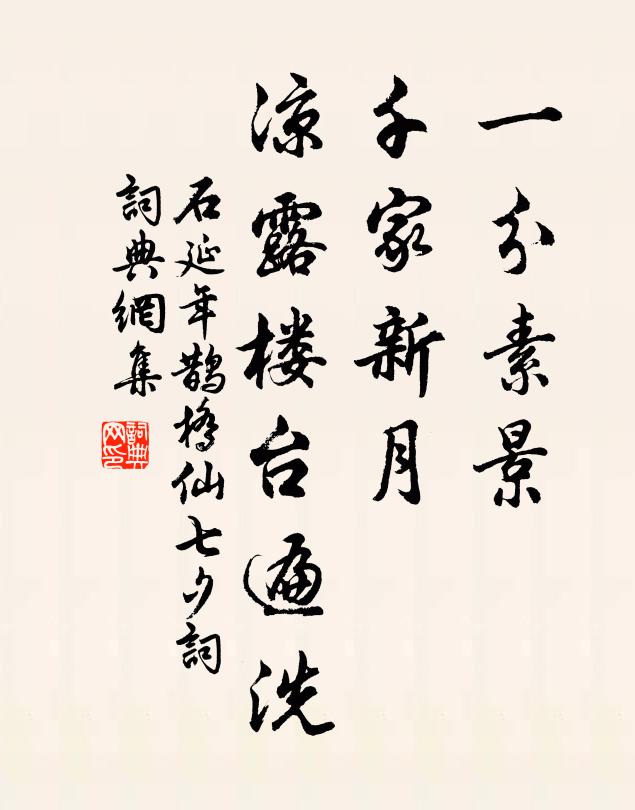 一分素景
千家新月
凉露楼台遍洗
石延年鹊桥仙七夕詞
詞典網集
詞典
网印